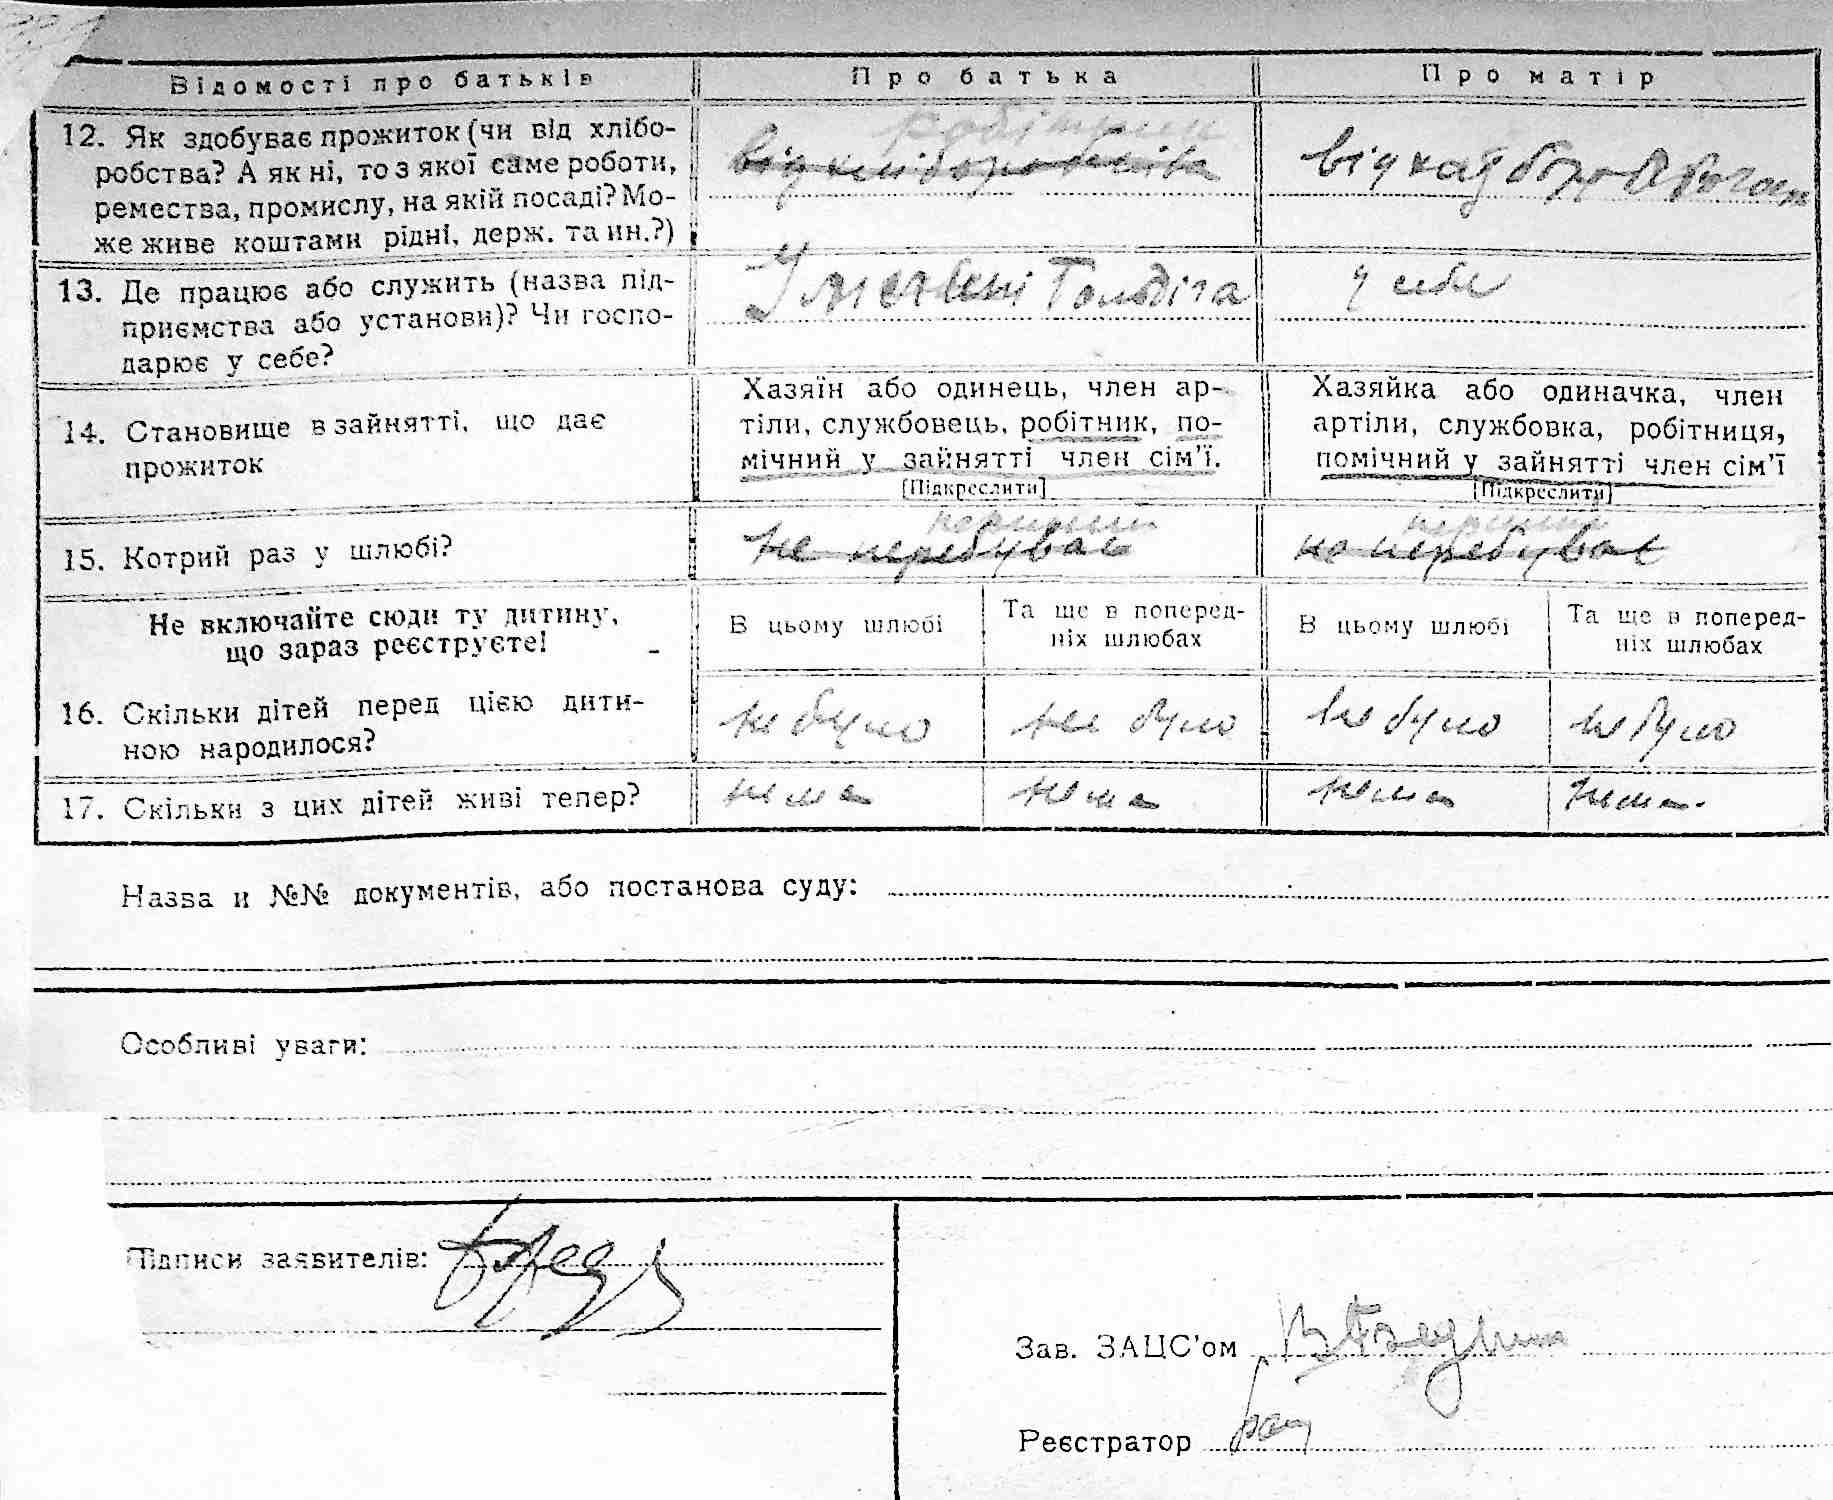 Відомості про батьків Про батька Про матір
12. Як здобуває прожиток (чи від хлібо-
робства? А як ні, то з якої саме роботи,
ремества, промислу, на якій посаді? Мо-
же живе коштами рідні, держ. та ин.?)
робітник
від хліборобства
від
13. Де працює або служить (назва під-
приємства або установи)? Чи госпо-
дарює у себе?
У
у себе
14. Становище в зайнятті, що дає
прожиток
Хазяїн або одинець, член ар-
тіли, службовець, робітник, по-
мічний у зайнятті член сім'ї.
[Підкреслити]
Хазяйка або одиначка, член
артіли, службовка, робітниця,
помічний у зайнятті член сім'ї
[Підкреслити]
15. Котрий раз у шлюбі?
перший
не перебував
перший
не перебував
Не включайте сюди ту дитину,
що зараз реєструєте!
В цьому шлюбі
Та ще в поперед-
ніх шлюбах
В цьому шлюбі
Та ще в поперед-
ніх шлюбах
16. Скільки дітей перед цією дити-
ною народилося?
не було не було не було не було
17. Скільки з цих дітей живі тепер?
нема нема нема нема
Назва и №№ документів, або постанова суду:
Особливі уваги:
Підписи заявителів:
Зав. ЗАЦС'ом
Реєстратор